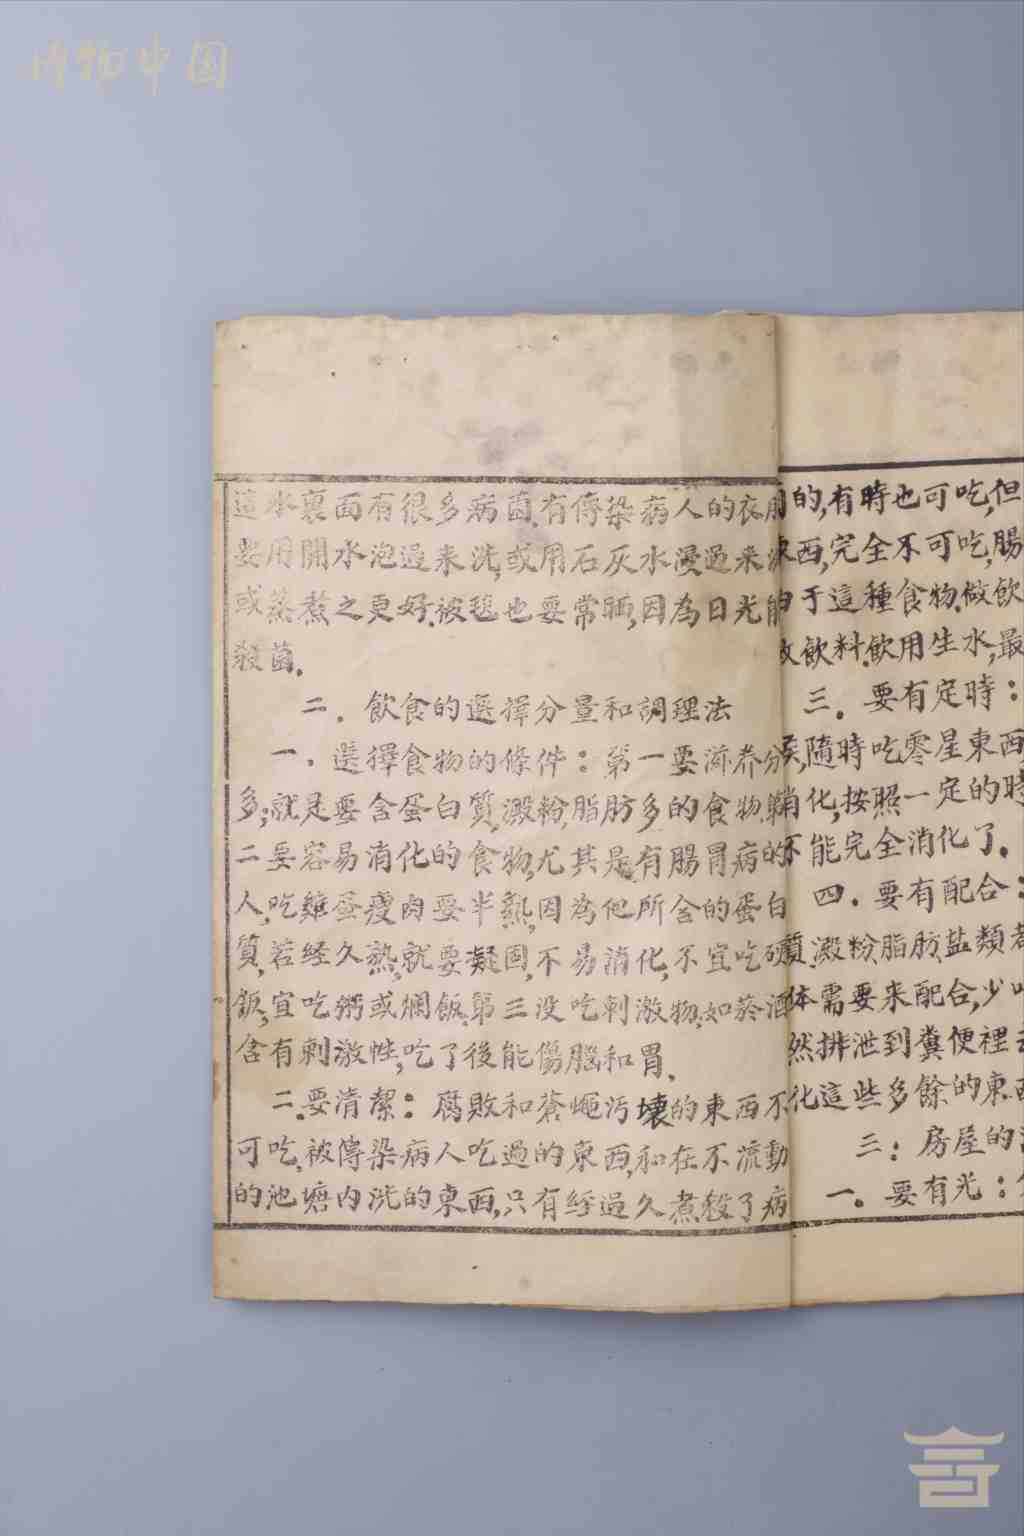 博物中国
這水裏面有很多病菌.有傳染病人的衣服
要用開水泡過来洗,或用石灰水浸過来洗
或蒸煮之更好.被毯也要常晒,因為日光能
殺菌.
二.飲食的選擇分量和調理法
一.選擇食物的條件:第一要滋养分
多;就是要含蛋白質,澱粉,脂肪多的食物.第
二要容易消化的食物,尤其是有腸胃病的
人,吃雞蛋瘦肉要半熟,因為他所含的蛋白
質,若經久熟,就要凝固,不易消化,不宜吃硬
飯,宜吃粥或爛飯.第三没吃刺激物.如菸酒
含有刺激性,吃了後能傷腦和胃.
二.要清潔:腐敗和蒼蠅污壞的東西不
可吃,被傳染病人吃過的東西,和在不流動
的池塘内洗的東西,只有經過久煮殺了病
的,有時也可吃,但
東西,完全不可吃,腸
于這種食物.做飲
飲料.飲用生水,最
三.要有定時:
隨時吃零星東西
消化,按照一定的時
不能完全消化了.
四.要有配合:
質.澱粉脂肪.盐類
体需要来配合,少
然排泄到糞便裡
化這些多餘的東西
三:房屋的
一.要有光: